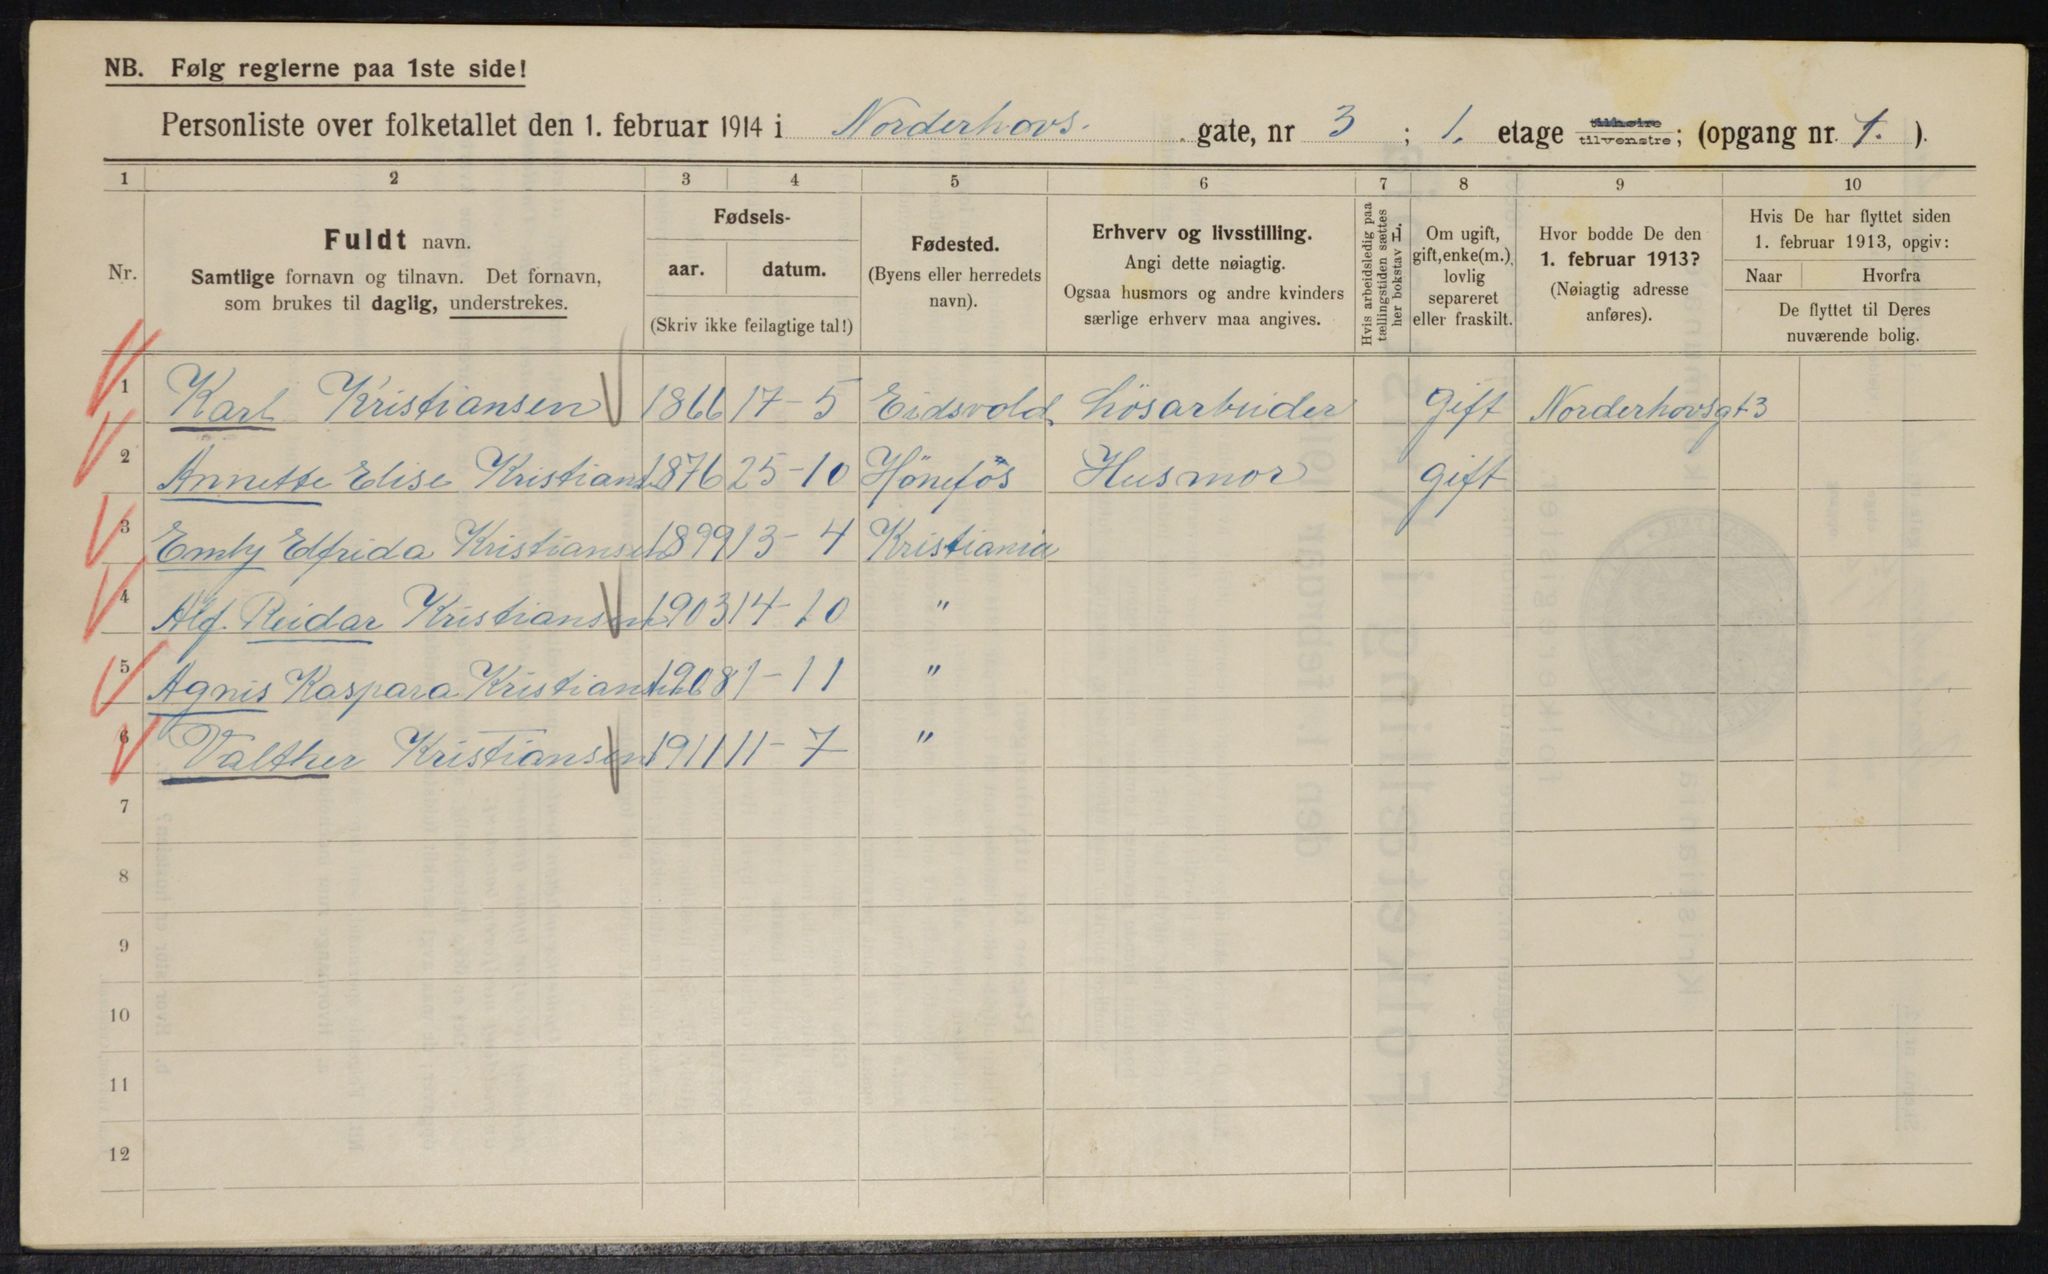 NB. Følg reglerne paa 1ste side!
Personliste over folketallet den 1. februar 1914 i Norderhovs. gate, nr 3 ; 1. etage tilhøire tilvenstre; (opgang nr. 1. ).
1 2 3 4 5 6 7 8 9 10
Nr.
Fuldt navn.
Samtlige fornavn og tilnavn. Det fornavn,
som brukes til daglig, understrekes.
Fødsels-
aar. datum.
(Skriv ikke feilagtige tal!)
Fødested.
(Byens eller herredets
navn).
Erhverv og livsstilling.
Angi dette nøiagtig.
Ogsaa husmors og andre kvinders
særlige erhverv maa angives.
Hvis arbeidsledig paa
tællingstiden sættes
her bokstav
Om ugift,
gift, enke(m.),
lovlig
separeret
eller fraskilt.
Hvor bodde De den
1. februar 1913?
(Nøiagtig adresse
anføres).
Hvis De har flyttet siden
1. februar 1913, opgiv:
Naar Hvorfra
De flyttet til Deres
nuværende bolig.
1 Karl Kristiansen 1866 17-5 Eidsvold Løsarbeider gift Norderhovsgt 3
2 Annette Elise Kristians 1876 25-10 Hönefös Husmor gift
3 Emly Elfrida Kristiansen 1899 13-4 Kristiania
4 Alf. Reidar Kristiansen 1903 14-10 "
5 Agnis Kaspara Kristiansen 1908 1-11 "
6 Valther Kristiansen 1911 11-7 "
7
8
9
10
11
12